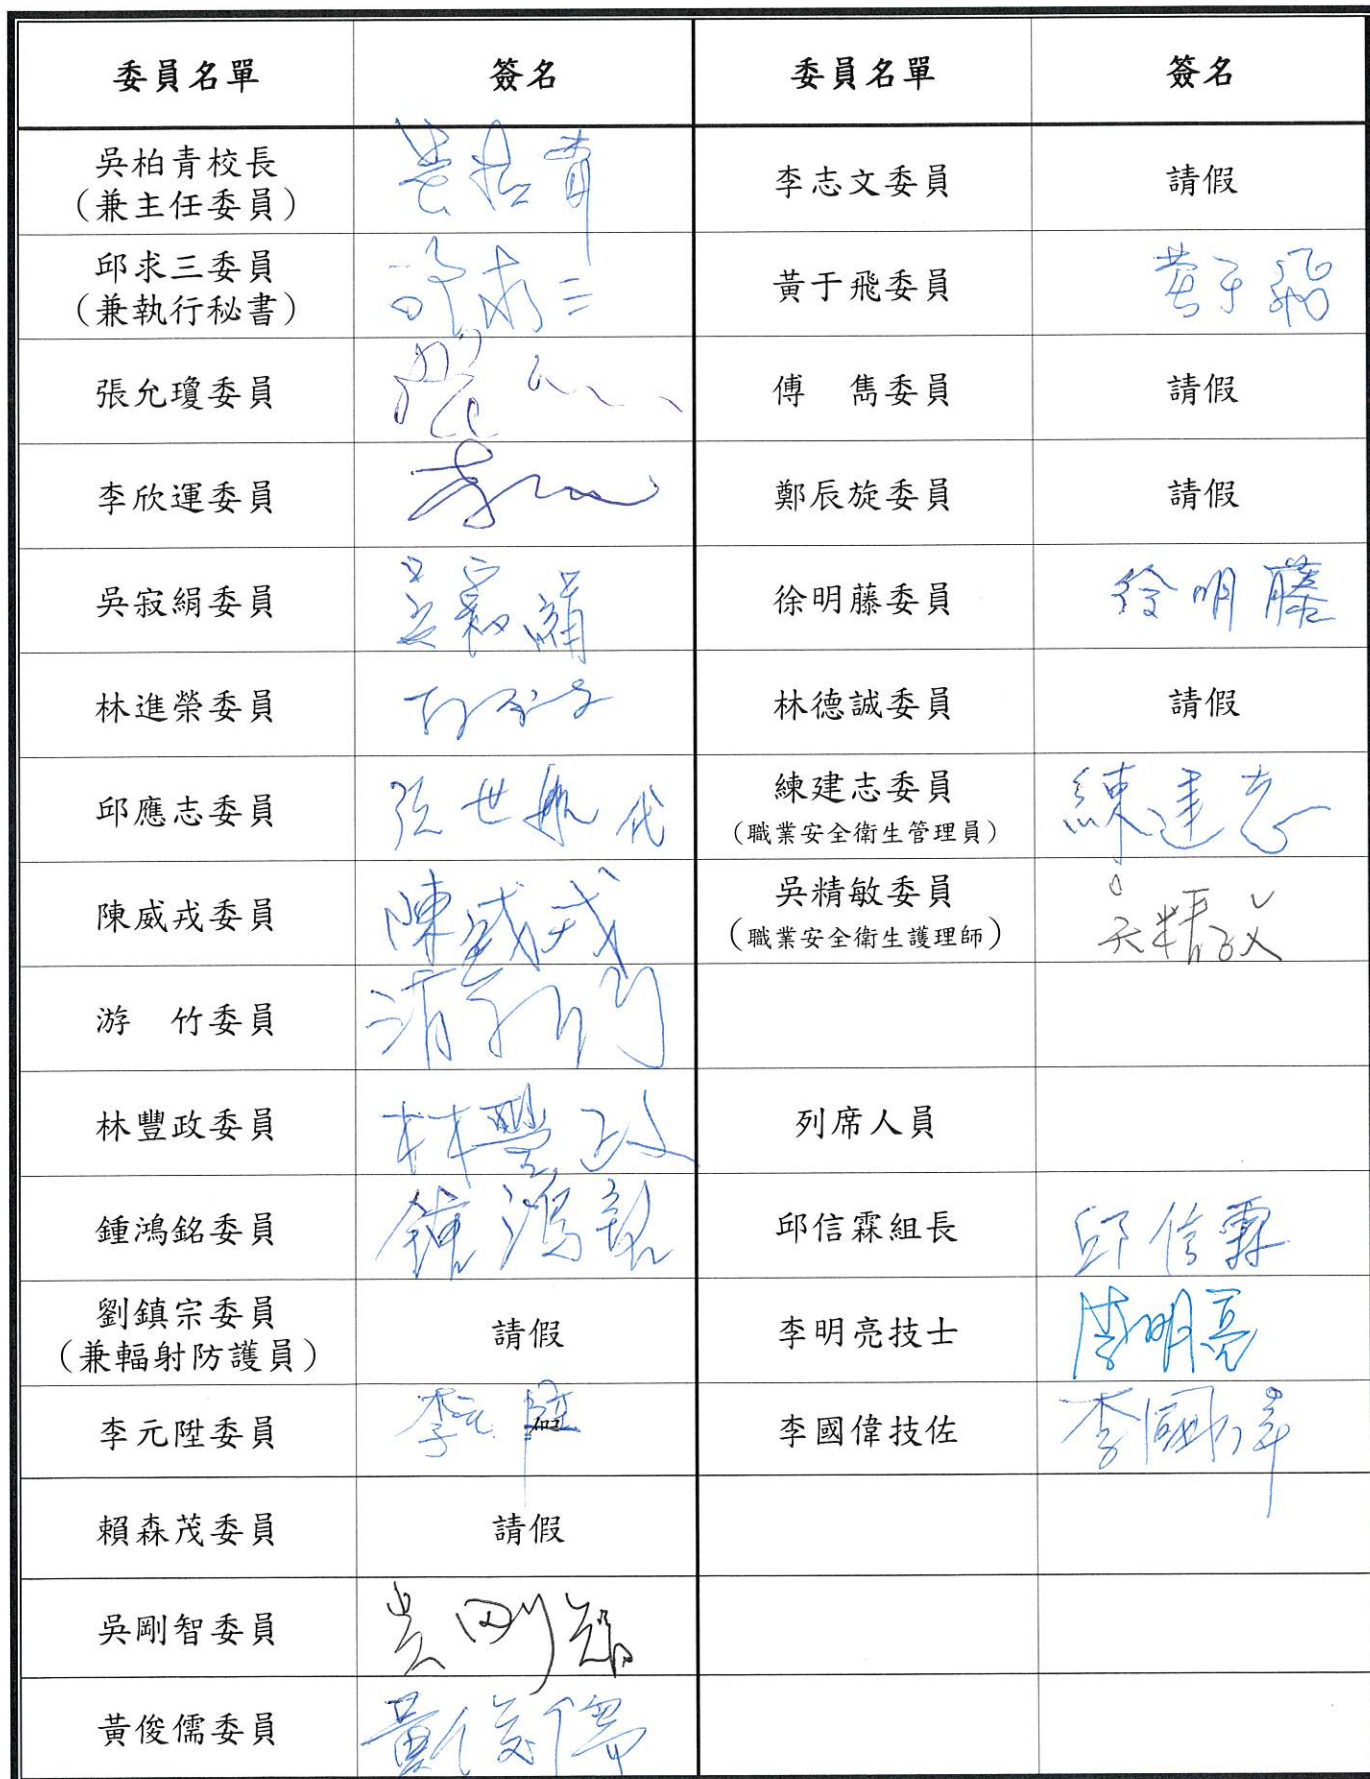 委員名單 簽名 委員名單 簽名
吳柏青校長 吳柏青 李志文委員 請假
(兼主任委員)
邱求三委員 邱求三 黃于飛委員 黃于飛
(兼執行秘書)
張允瓊委員 傅 雋委員 請假
李欣運委員 鄭辰旋委員 請假
吳寂絹委員 吳寂絹 徐明藤委員 徐明藤
林進榮委員 林德誠委員 請假
邱應志委員 張世航 代 練建志委員 練建志
(職業安全衛生管理員)
陳威戎委員 陳威戎 吳精敏委員 吳精敏
(職業安全衛生護理師)
游 竹委員
林豐政委員 林豐政 列席人員
鍾鴻銘委員 邱信霖組長 邱信霖
劉鎮宗委員 請假 李明亮技士 李明亮
(兼輻射防護員)
李元陞委員 李元陞 李國偉技佐 李國偉
賴森茂委員 請假
吳剛智委員 吳剛智
黃俊儒委員 黃俊儒